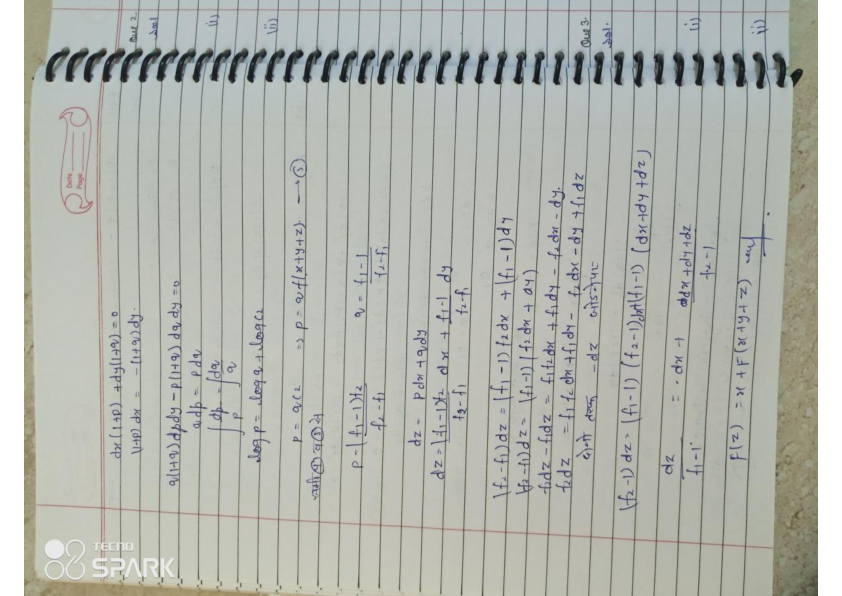 Date
Page
dx(1+p) + dy(1+q) = 0
(1+p) dx = -(1+q) dy.
q(1+q) dp dy - p(1+q) dq dy = 0
q dp = p dq
∫ dp/p = ∫ dq/q
log p = log q + log c2
p = q c2 ⇒ p = q f(x+y+z) → (5)
समी (4) व (5) से
p = (f1-1)f2 / f2-f1 q = f1-1 / f2-f1
dz = pdx + qdy
dz = (f1-1)f2 / f2-f1 dx + f1-1 / f2-f1 dy
(f2-f1) dz = (f1-1) f2 dx + (f1-1) dy
(f2-f1) dz = (f1-1) (f2 dx + dy)
f2dz - f1dz = f1f2dx + f1dy - f2dx - dy.
f2dz = f1f2 dx + f1dy - f2dx - dy + f1dz
दोनों तरफ -dz जोड़ने पर
(f2-1) dz = (f1-1) (f2-1)dx (f1-1) (dx+dy+dz)
dz / f1-1 = dx + dx+dy+dz / f2-1
F(z) = x + F(x+y+z)
Que 2.
Sol.
(i)
(ii)
Que 3.
Sol.
(i)
(ii)
TECNO
SPARK